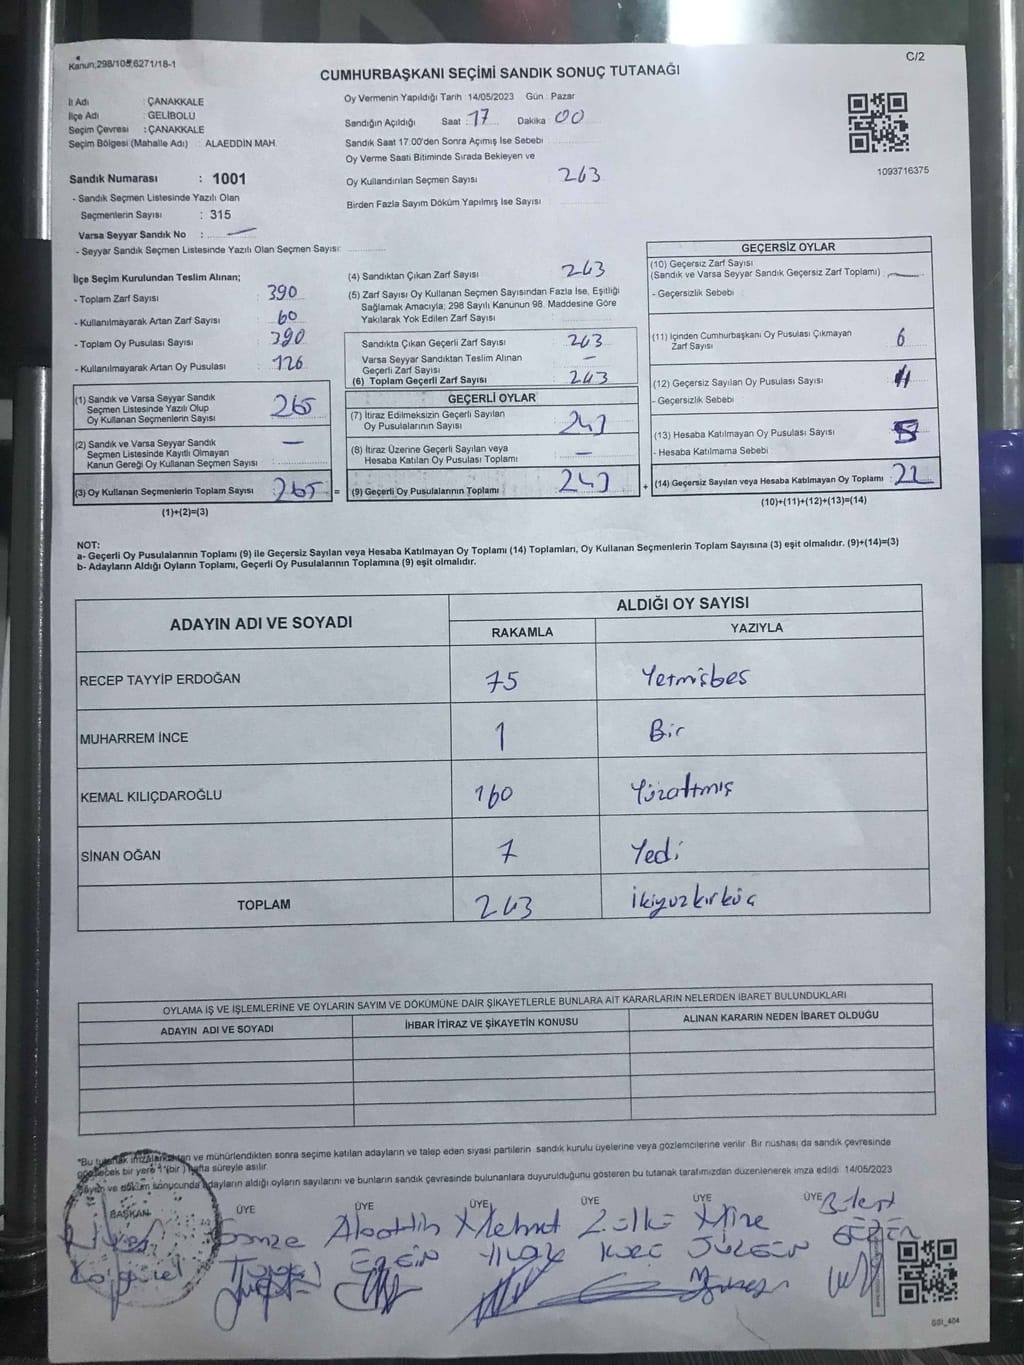 Kanun:298/105,6271/18-1
C/2
CUMHURBAŞKANI SEÇİMİ SANDIK SONUÇ TUTANAĞI
İl Adı : ÇANAKKALE
İlçe Adı : GELİBOLU
Seçim Çevresi : ÇANAKKALE
Seçim Bölgesi (Mahalle Adı) : ALAEDDİN MAH.
Oy Vermenin Yapıldığı Tarih 14/05/2023 Gün : Pazar
Sandığın Açıldığı Saat : 17 Dakika 00
Sandık Saat 17.00'den Sonra Açımış İse Sebebi
Oy Verme Saati Bitiminde Sırada Bekleyen ve
Oy Kullandırılan Seçmen Sayısı 263
Birden Fazla Sayım Döküm Yapılmış İse Sayısı
1093716375
Sandık Numarası : 1001
- Sandık Seçmen Listesinde Yazılı Olan
Seçmenlerin Sayısı : 315
Varsa Seyyar Sandık No : —
- Seyyar Sandık Seçmen Listesinde Yazılı Olan Seçmen Sayısı:
İlçe Seçim Kurulundan Teslim Alınan;
- Toplam Zarf Sayısı : 390
- Kullanılmayarak Artan Zarf Sayısı : 60
- Toplam Oy Pusulası Sayısı : 390
- Kullanılmayarak Artan Oy Pusulası : 126
(1) Sandık ve Varsa Seyyar Sandık
Seçmen Listesinde Yazılı Olup
Oy Kullanan Seçmenlerin Sayısı : 265
(2) Sandık ve Varsa Seyyar Sandık
Seçmen Listesinde Kayıtlı Olmayan
Kanun Gereği Oy Kullanan Seçmen Sayısı : —
(3) Oy Kullanan Seçmenlerin Toplam Sayısı : 265 =
(1)+(2)=(3)
(4) Sandıktan Çıkan Zarf Sayısı 263
(5) Zarf Sayısı Oy Kullanan Seçmen Sayısından Fazla İse, Eşitliği
Sağlamak Amacıyla; 298 Sayılı Kanunun 98. Maddesine Göre
Yakılarak Yok Edilen Zarf Sayısı
Sandıkta Çıkan Geçerli Zarf Sayısı : 263
Varsa Seyyar Sandıktan Teslim Alınan
Geçerli Zarf Sayısı : —
(6) Toplam Geçerli Zarf Sayısı : 263
GEÇERLİ OYLAR
(7) İtiraz Edilmeksizin Geçerli Sayılan
Oy Pusulalarının Sayısı : 243
(8) İtiraz Üzerine Geçerli Sayılan veya
Hesaba Katılan Oy Pusulası Toplamı : —
(9) Geçerli Oy Pusulalarının Toplamı : 243 +
GEÇERSİZ OYLAR
(10) Geçersiz Zarf Sayısı
(Sandık ve Varsa Seyyar Sandık Geçersiz Zarf Toplamı) : —
- Geçersizlik Sebebi :
(11) İçinden Cumhurbaşkanı Oy Pusulası Çıkmayan
Zarf Sayısı : 6
(12) Geçersiz Sayılan Oy Pusulası Sayısı :
- Geçersizlik Sebebi :
(13) Hesaba Katılmayan Oy Pusulası Sayısı :
- Hesaba Katılmama Sebebi :
(14) Geçersiz Sayılan veya Hesaba Katılmayan Oy Toplamı : 22
(10)+(11)+(12)+(13)=(14)
NOT:
a- Geçerli Oy Pusulalarının Toplamı (9) ile Geçersiz Sayılan veya Hesaba Katılmayan Oy Toplamı (14) Toplamları, Oy Kullanan Seçmenlerin Toplam Sayısına (3) eşit olmalıdır. (9)+(14)=(3)
b- Adayların Aldığı Oyların Toplamı, Geçerli Oy Pusulalarının Toplamına (9) eşit olmalıdır.
ADAYIN ADI VE SOYADI
ALDIĞI OY SAYISI
RAKAMLA YAZIYLA
RECEP TAYYİP ERDOĞAN 75 Yetmişbeş
MUHARREM İNCE 1 Bir
KEMAL KILIÇDAROĞLU 160 Yüzaltmış
SİNAN OĞAN 7 Yedi
TOPLAM 243 İkiyüzkırküç
OYLAMA İŞ VE İŞLEMLERİNE VE OYLARIN SAYIM VE DÖKÜMÜNE DAİR ŞİKAYETLERLE BUNLARA AİT KARARLARIN NELERDEN İBARET BULUNDUKLARI
ADAYIN ADI VE SOYADI İHBAR İTİRAZ VE ŞİKAYETİN KONUSU ALINAN KARARIN NEDEN İBARET OLDUĞU
*Bu tutanak imzalandıktan ve mühürlendikten sonra seçime katılan adayların ve talep eden siyasi partilerin sandık kurulu üyelerine veya gözlemcilerine verilir. Bir nüshası da sandık çevresinde
görülecek bir yere 1 (bir) hafta süreyle asılır.
Sayım ve döküm sonucunda adayların aldığı oyların sayılarını ve bunların sandık çevresinde bulunanlara duyurulduğunu gösteren bu tutanak tarafımızdan düzenlenerek imza edildi. 14/05/2023
BAŞKAN ÜYE ÜYE ÜYE ÜYE ÜYE ÜYE
Gamze Alaattin Mehmet Zülki Mine Bülent
GEZEN
GSI_404